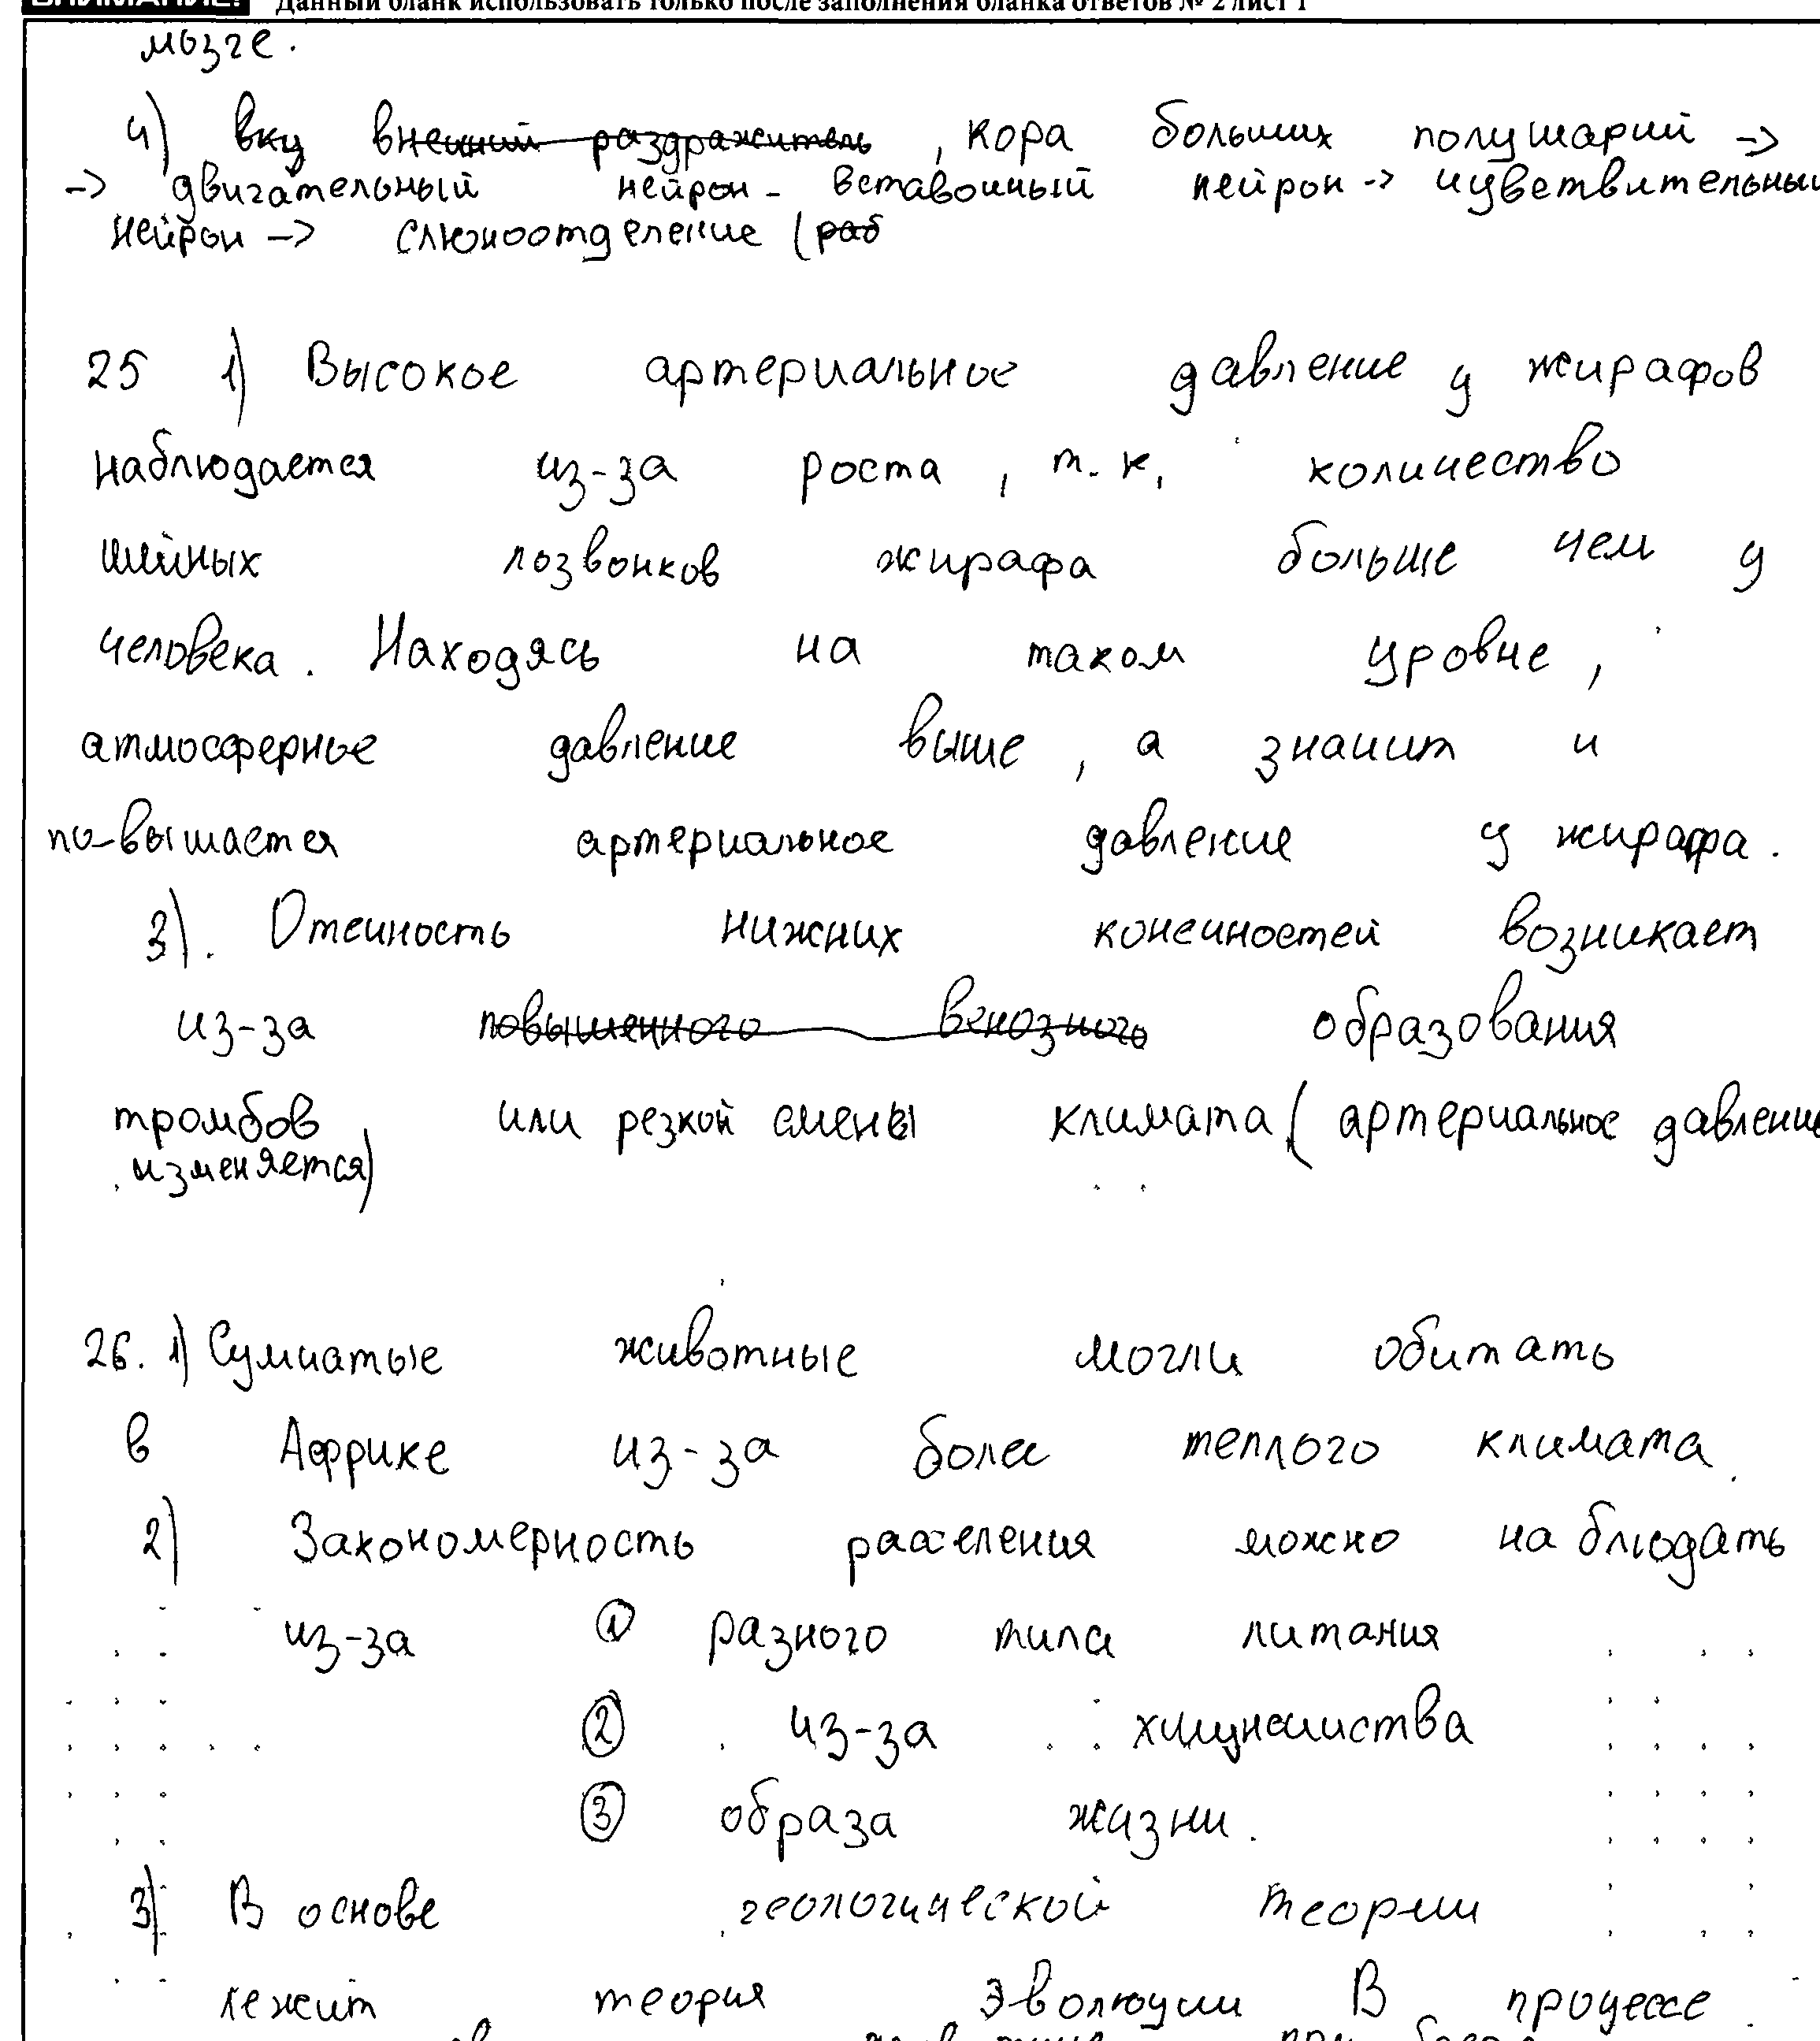 Данный бланк использовать только после заполнения бланка ответов № 2 лист 1
мозге.
4) вку внешний раздражитель, кора больших полушарий ->
-> двигательный нейрон - вставочный нейрон -> чувствительный
нейрон -> слюноотделение (раб
25 1) Высокое артериальное давление у жирафов
наблюдается из-за роста, т.к. количество
шейных позвонков жирафа больше чем у
человека. Находясь на таком уровне,
атмосферное давление выше, а значит и
по-вышается артериальное давление у жирафа.
3). Отечность нижних конечностей возникает
из-за повышенного венозного образования
тромбов или резкой смены климата (артериальное давление
изменяется)
26. 1) Сумчатые животные могли обитать
в Африке из-за более теплого климата.
2) Закономерность расселения можно наблюдать
из-за ① разного типа питания
② из-за хищничества
③ образа жизни.
3) В основе геологической теории
лежит теория эволюции В процессе